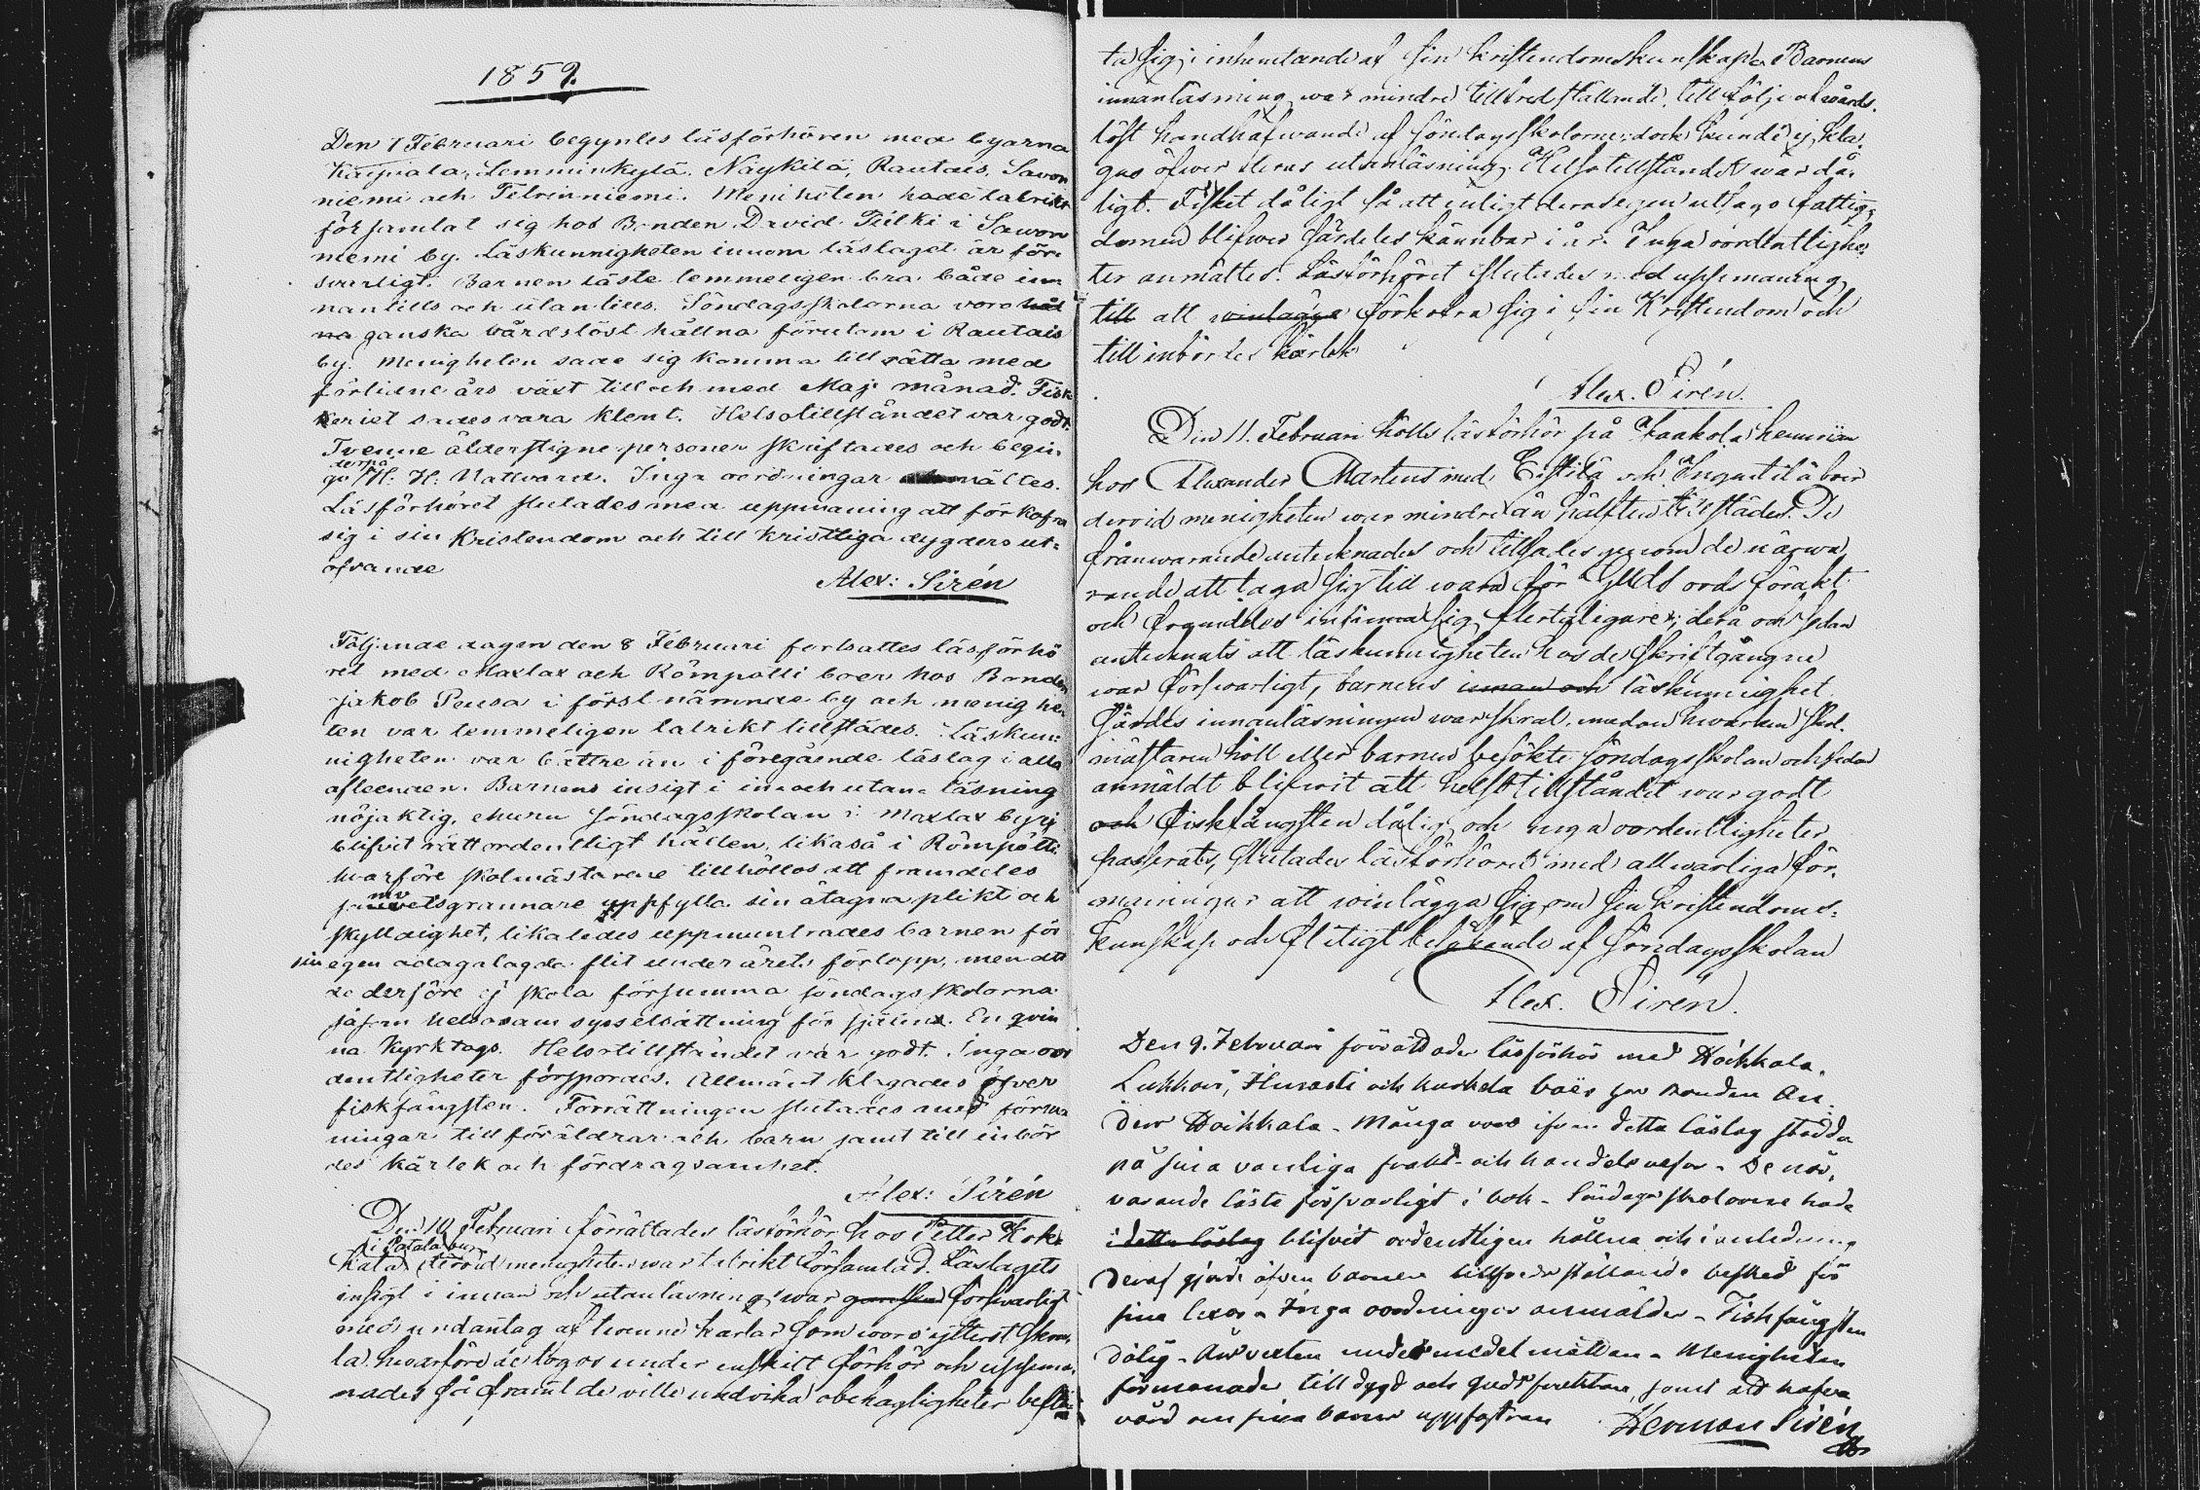 1859.
Den 7 Februari begyntes läsförhören med byarna
Kaipiala, Lemminkylä, Näykilä, Rautais, Savon
niemi och Telvinniemi. Meniheten hade talrikt
församlat sig hos Bonden David Pilki i Sawon
niemi by. Läskunnigheten innom läslaget är för-
svarligt. Barnen läste lemmeligen bra både in-
nantills och utantills. Söndagsskolorna voro håll
na ganska vårdslöst hållna förutom i Rautais
by. Menigheten sade sig komma till rätta med
förlidne års växt till och med Maji månad. Fisk
keriet sades vara klent. Helsotillståndet var godt.
Tvenne ålderstigne personer skriftades och begin-
go derpå H. H. Nattvard. Inga oordningar anmältes.
Läsförhöret slutades med uppmaning att förkofra
sig i sin Kristendom och till Kristliga dygders ut-
öfvande
Alex: Sirén
Följande dagen den 8 Februari fortsattes läsförhö
ret med Maxlax och Römpötti boer hos Bonden
Jakob Peusa i först nämnde by och menighe-
ten var lemmeligen talrikt tillstädes. Läskun-
nigheten var bättre än i föregående läslag i alla
afseenden. Barnens insigt i in- och utan- läsning
nöjaktig, ehuru söndagsskolan i Maxlax by ej
blifvit rätt ordentligt hållen, likaså i Römpötti
hvarföre skolmästarene tillhöllos att framdeles
samvetsgrannare uppfylla sin åtagna plikt och
skylldighet, likaledes uppmuntrades barnen för
sin egen ådagalagda flit under årets förlopp, men att
de derföre ej skola försumma söndagsskolorna
såsom helsosam sysselsättning för själen. En qvin
na Kyrktogs. Helsotillståndet var godt. Inga oor
dentligheter förspordes. Allmänt klagades öfver
fiskfångsten. Förrättningen slutades med förma
ningar till föräldrar och barn samt till inbör
des kärlek och fördragsamhet.
Alex: Sirén
Den 10 Februari förrättades läsförhör hos Petter Hok-
kala i Patala by dervid menigheten war talrikt församlad. Läslagets
insigt i innan och utanläsning war ganska försvarligt
med undantag af tvenne karlar som woro ytterst skra-
la hvarföre de togos under enskilt förhör och uppma-
nades så framt de ville undvika obehagligheter beflita
ta sig i inhemtande af sin kristendomskunskap. Barnens
innanläsning war mindre tillfredställande, till följe af vårds-
löst handhafwande af söndagsskolorne; dock kunde ej kla-
gas öfwer deras utanläsning. Helsotillståndet war då-
ligt. Fisket dåligt så att enligt deras egen utsago fattig-
domen blifwer särdeles kännbar i år. Inga oordentlighe-
ter anmältes. Läsförhöret slutades med uppmaning
till att winlägga förkofra sig i sin Kristendom och
till inbördes kärlek
Alex. Sirén.
Den 11. Februari hölls läsförhör på Kaakola hemman
hos Alexander Martens med Eistilä och Ingertilä boer
dervid menigheten war mindre än hälften tillstädes. De
frånwarande antecknades och tillsades genom de närwa
rande att taga sig till wara för Guds ords förakt
och
antecknats att läskunnigheten hos de skriftgångne
war försvarligt, barnens innan och läskunnighet
särdes innanläsningen war skral, medan hwarken skol-
mästaren höll eller barnen besökte söndagsskolan och sedan
anmäldt blifwit att helsotillståndet war godt
och fiskfångsten dålig och inga oordentligheter
passerats, slutades läsförhöret med allwarliga för-
maningar att winlägga sig om sin kristendoms-
kunskap och flitigt besökande af söndagsskolan
Alex. Sirén.
Den 9. Februari förrättades läsförhör med Hoikkala,
Lukkari, Ilmasti och Kurkela boer hos bonden An-
ders Hoikkala. Många voro ifrån detta läslag stadda
på sina vanliga frakt- och handelsresor. De när-
varande läste försvarligt i bok. Söndagsskolorna hade
i detta läslag blifvit ordentligen hållna och i anledning
deraf gjorde äfven barnen tillfredsställande besked för
sina lexor. Inga oordningar anmäldes. Fiskfångsten
dålig. Årsvexten under medelmåttan. Menigheten
förmanades till dygd och gudsfruktan, samt att hafva
vård om sina barns uppfostran
Herman Sirén